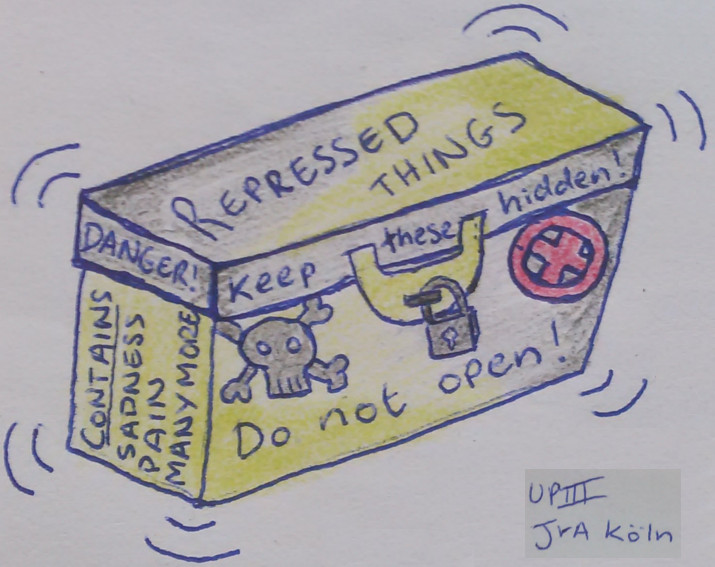 REPRESSED
THINGS
DANGER!
Keep these hidden!
CONTAINS
SADNESS
PAIN
MANY MORE
Do not open!
UPIII
JVA Köln